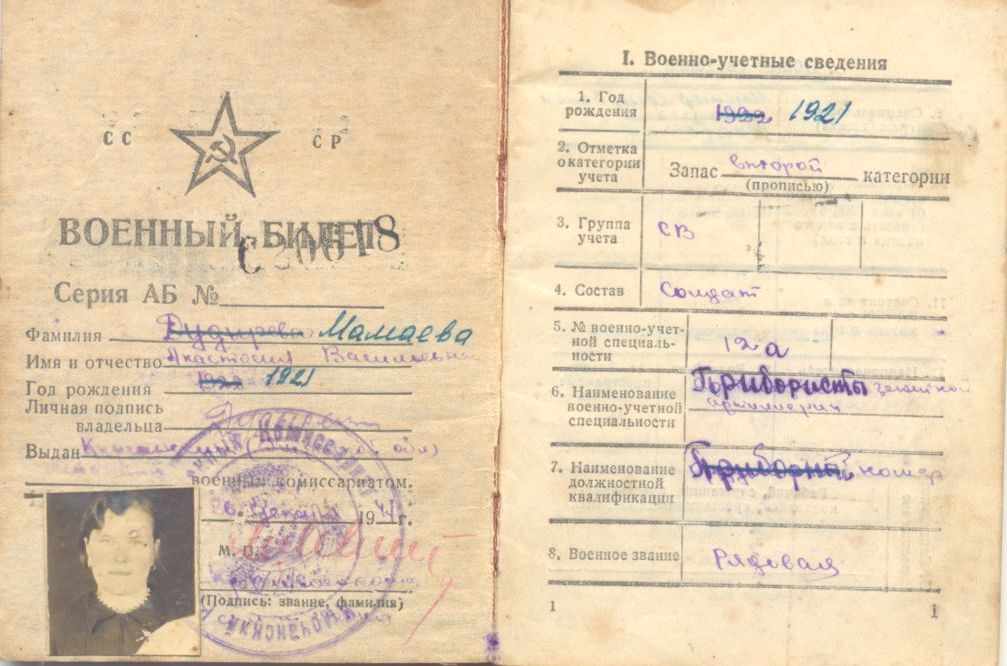 СС СР
ВОЕННЫЙ БИЛЕТ
Серия АБ №
Фамилия Мамаева
Имя и отчество Анастасия Васильевна
Год рождения 1922 1921
Личная подпись
владельца
Выдан
военным комиссариатом.
194 г.
М. П.
(Подпись: звание, фамилия)
I. Военно-учетные сведения
1. Год
рождения 1922 1921
2. Отметка
о категории
учета Запас второй категории
(прописью)
3. Группа
учета СВ
4. Состав Солдат
5. № военно-учет-
ной специаль-
ности 12а
6. Наименование
военно-учетной
специальности Прибористы зенитной
артиллерии
7. Наименование
должностной
квалификации Приборный номер
8. Военное звание Рядовая
1 1